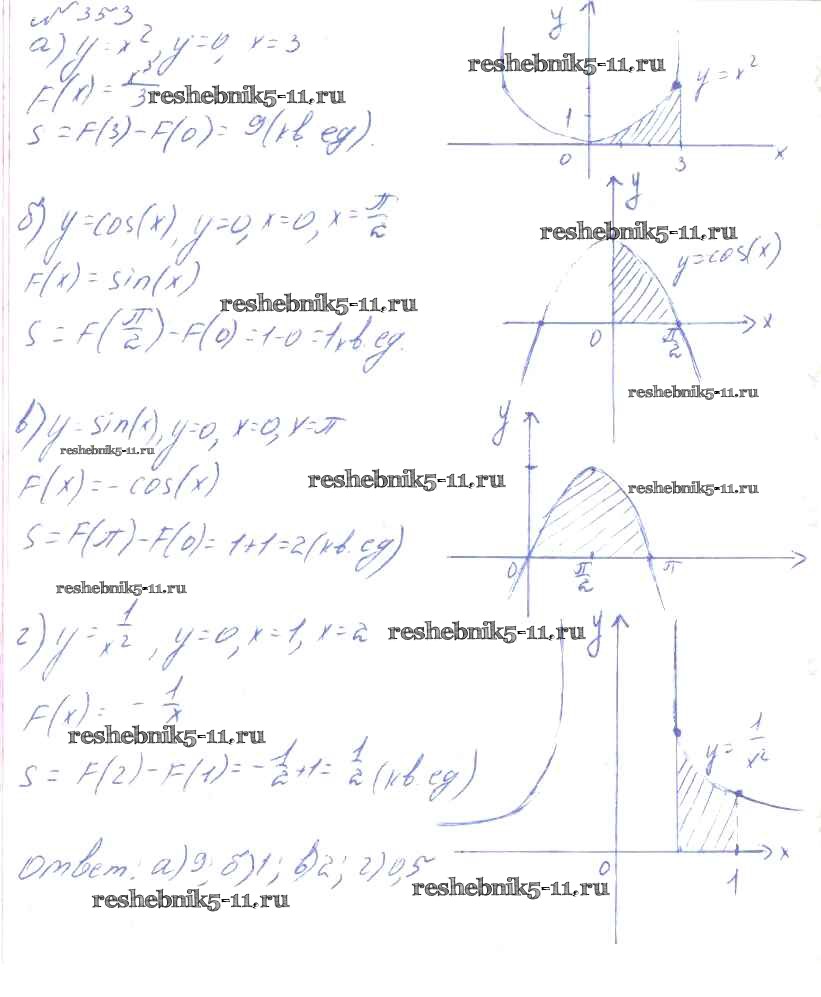 № 353
а) y = x², y=0, x = 3
F(x) = x³/3
S = F(3) - F(0) = 9 (кв. ед).
y
y = x²
1
0
3
x
reshebnik5-11.ru
reshebnik5-11.ru
б) y = cos(x), y=0, x=0, x = π/2
F(x) = sin(x)
S = F(π/2) - F(0) = 1 - 0 = 1 кв. ед.
y
y = cos(x)
0
π/2
x
reshebnik5-11.ru
reshebnik5-11.ru
reshebnik5-11.ru
в) y = sin(x), y=0, x=0, x=π
F(x) = - cos(x)
S = F(π) - F(0) = 1+1 = 2 (кв. ед)
y
0
π/2
π
reshebnik5-11.ru
reshebnik5-11.ru
reshebnik5-11.ru
reshebnik5-11.ru
г) y = 1/x², y=0, x=1, x=2
F(x) = - 1/x
S = F(2) - F(1) = - 1/2 + 1 = 1/2 (кв. ед)
y
y = 1/x²
0
1
x
reshebnik5-11.ru
reshebnik5-11.ru
Ответ: а) 9; б) 1; в) 2; г) 0,5
reshebnik5-11.ru
reshebnik5-11.ru